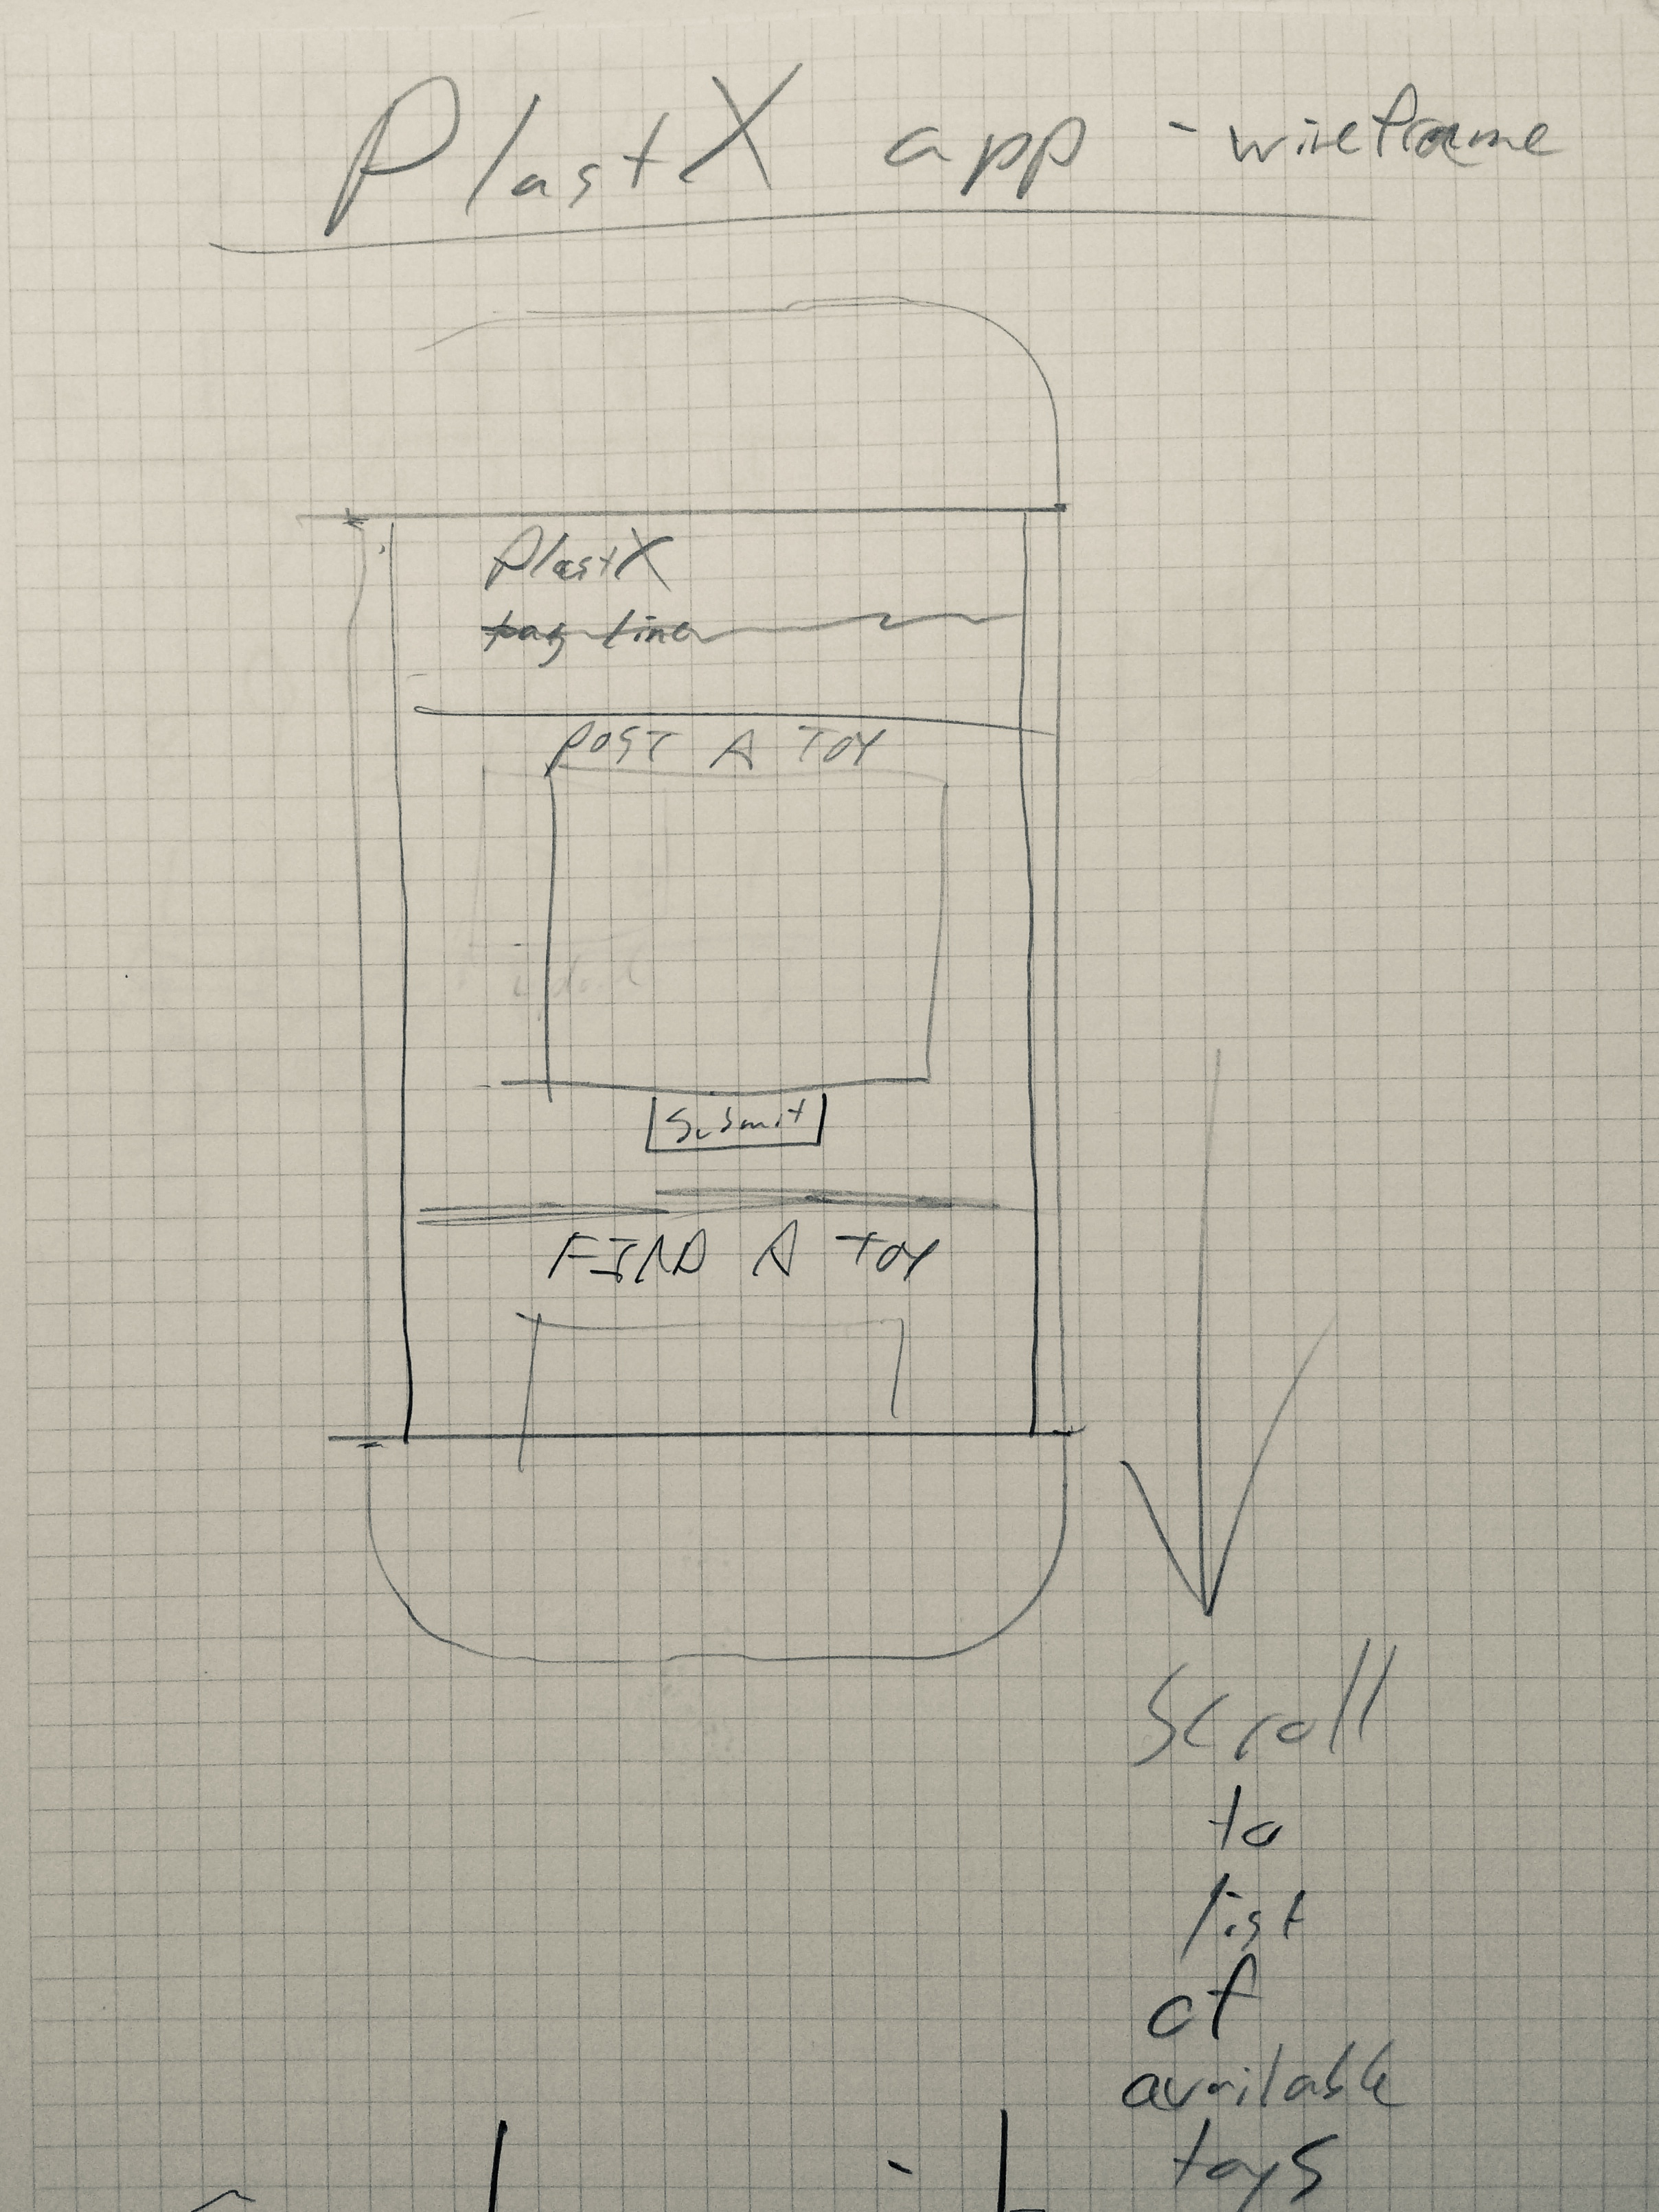 PlastX app - wireframe
PlastX
tag line
POST A TOY
Submit
FIND A TOY
Scroll
to
list
of
available
toys